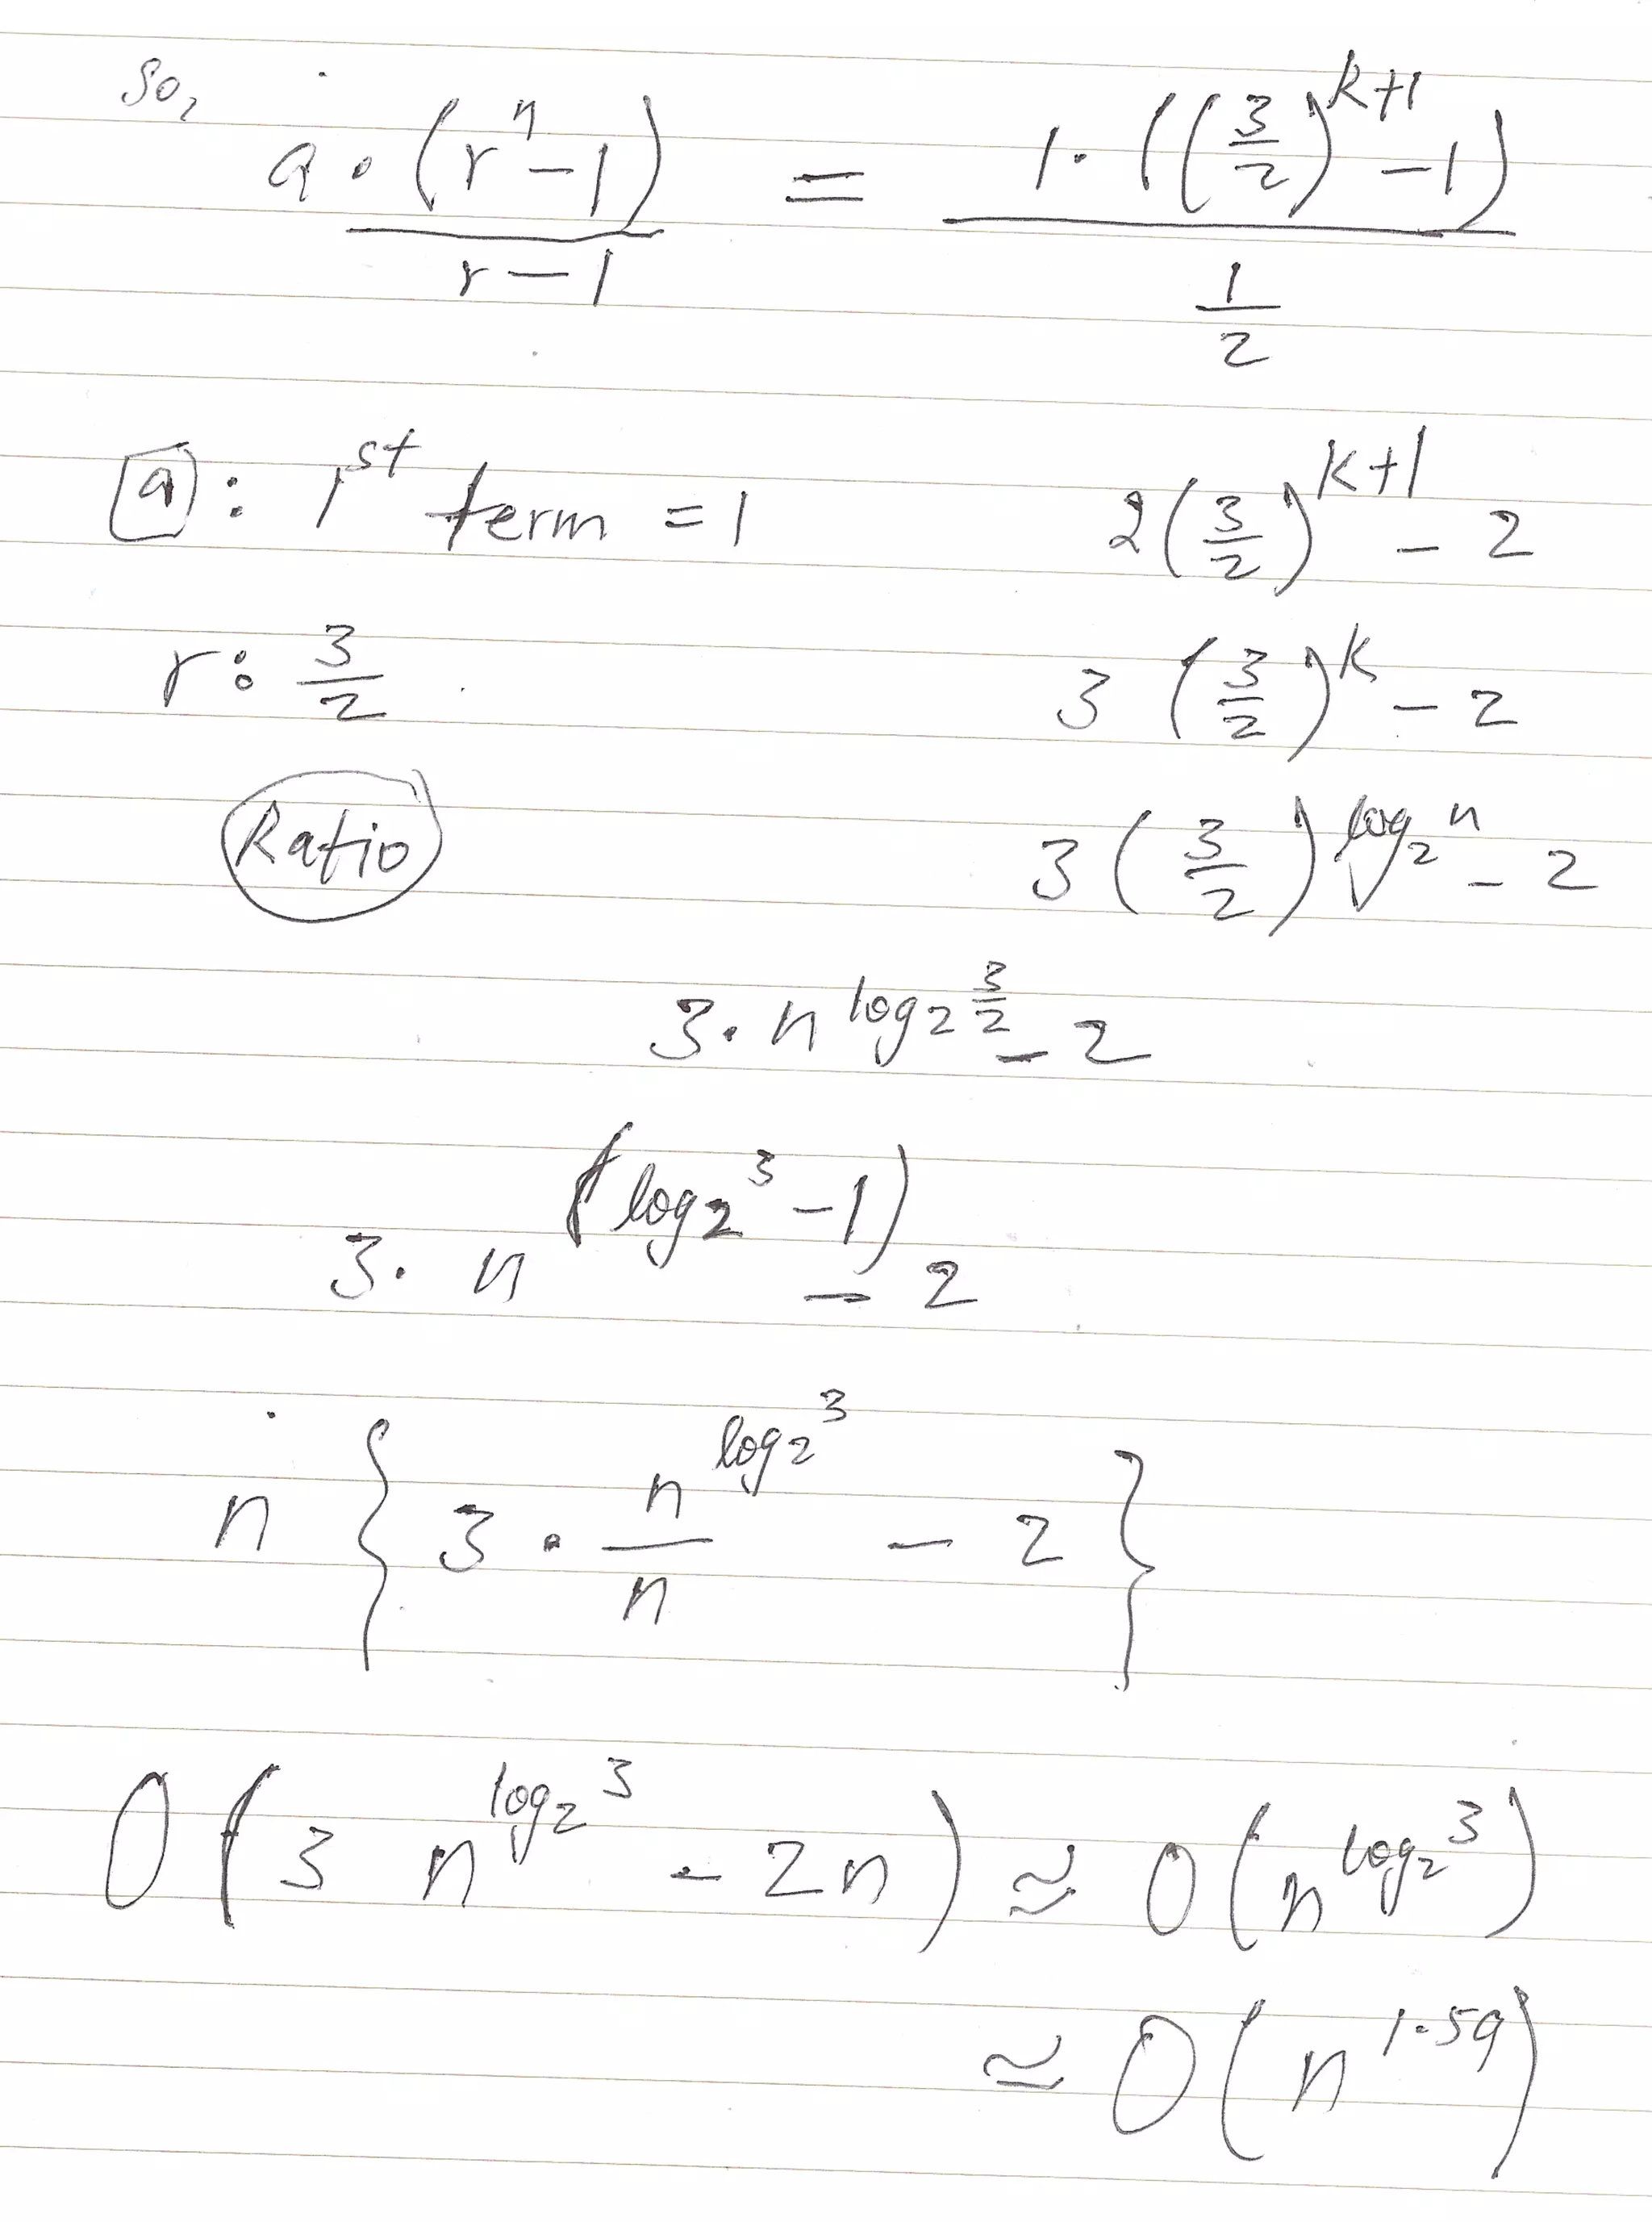 So,
a · (r^n - 1) / r - 1 = 1 · ((3/2)^{k+1} - 1) / 1/2
a : 1st term = 1
2(3/2)^{k+1} - 2
r : 3/2
3 (3/2)^k - 2
Ratio
3 (3/2)^{log_2 n} - 2
3 · n^{log_2 3/2} - 2
3 · n^{(log_2 3 - 1)} - 2
n { 3 · n^{log_2 3} / n - 2 }
O(3 n^{log_2 3} - 2n) ≈ O(n^{log_2 3})
≃ O(n^{1.59})